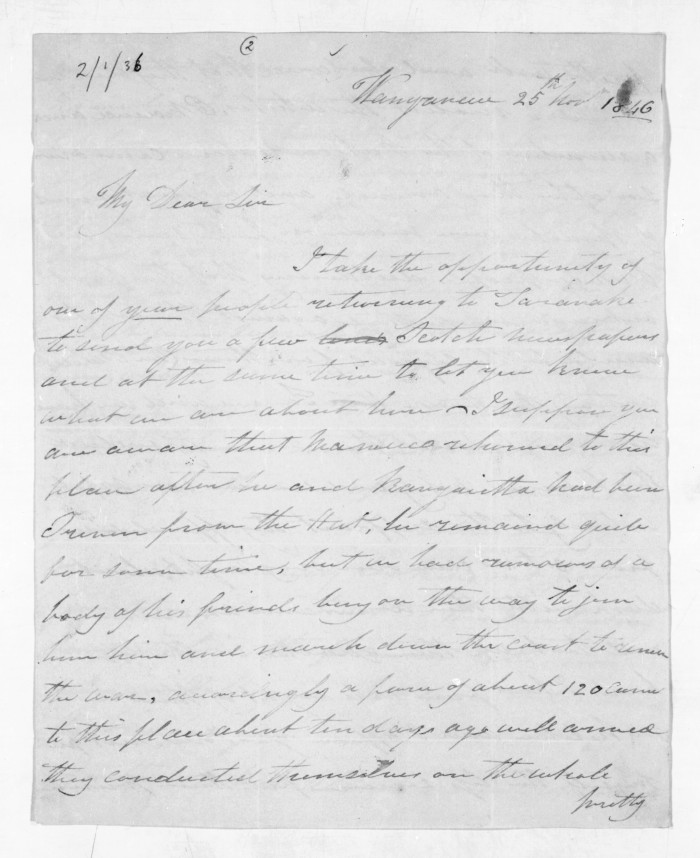 2/1/36
2
Wanganui 25th Nov 1846
My Dear Sir
I take the opportunity of
one of your people returning to Taranake
to send you a few Scotch newspapers
and at the same time to let you know
what we are about here - I suppose you
are aware that returned to this
place after he and had been
Driven from the Hut, he remained quite
for some time, but we had rumours of a
body of his friends being on the way to join
him here and march down the coast to renew
the war, accordingly a force of about 120 came
to this place about ten days ago well armed
they conducted themselves on the whole
pretty